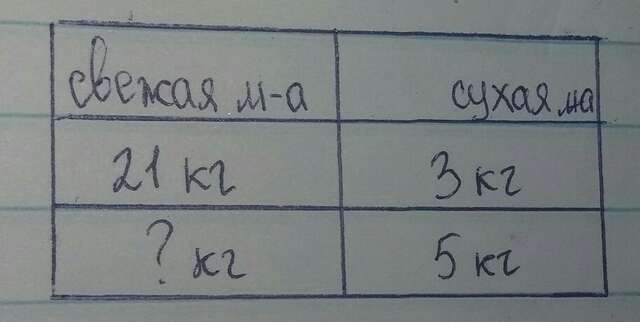 свежая м-а сухая м-а
21 кг 3 кг
? кг 5 кг